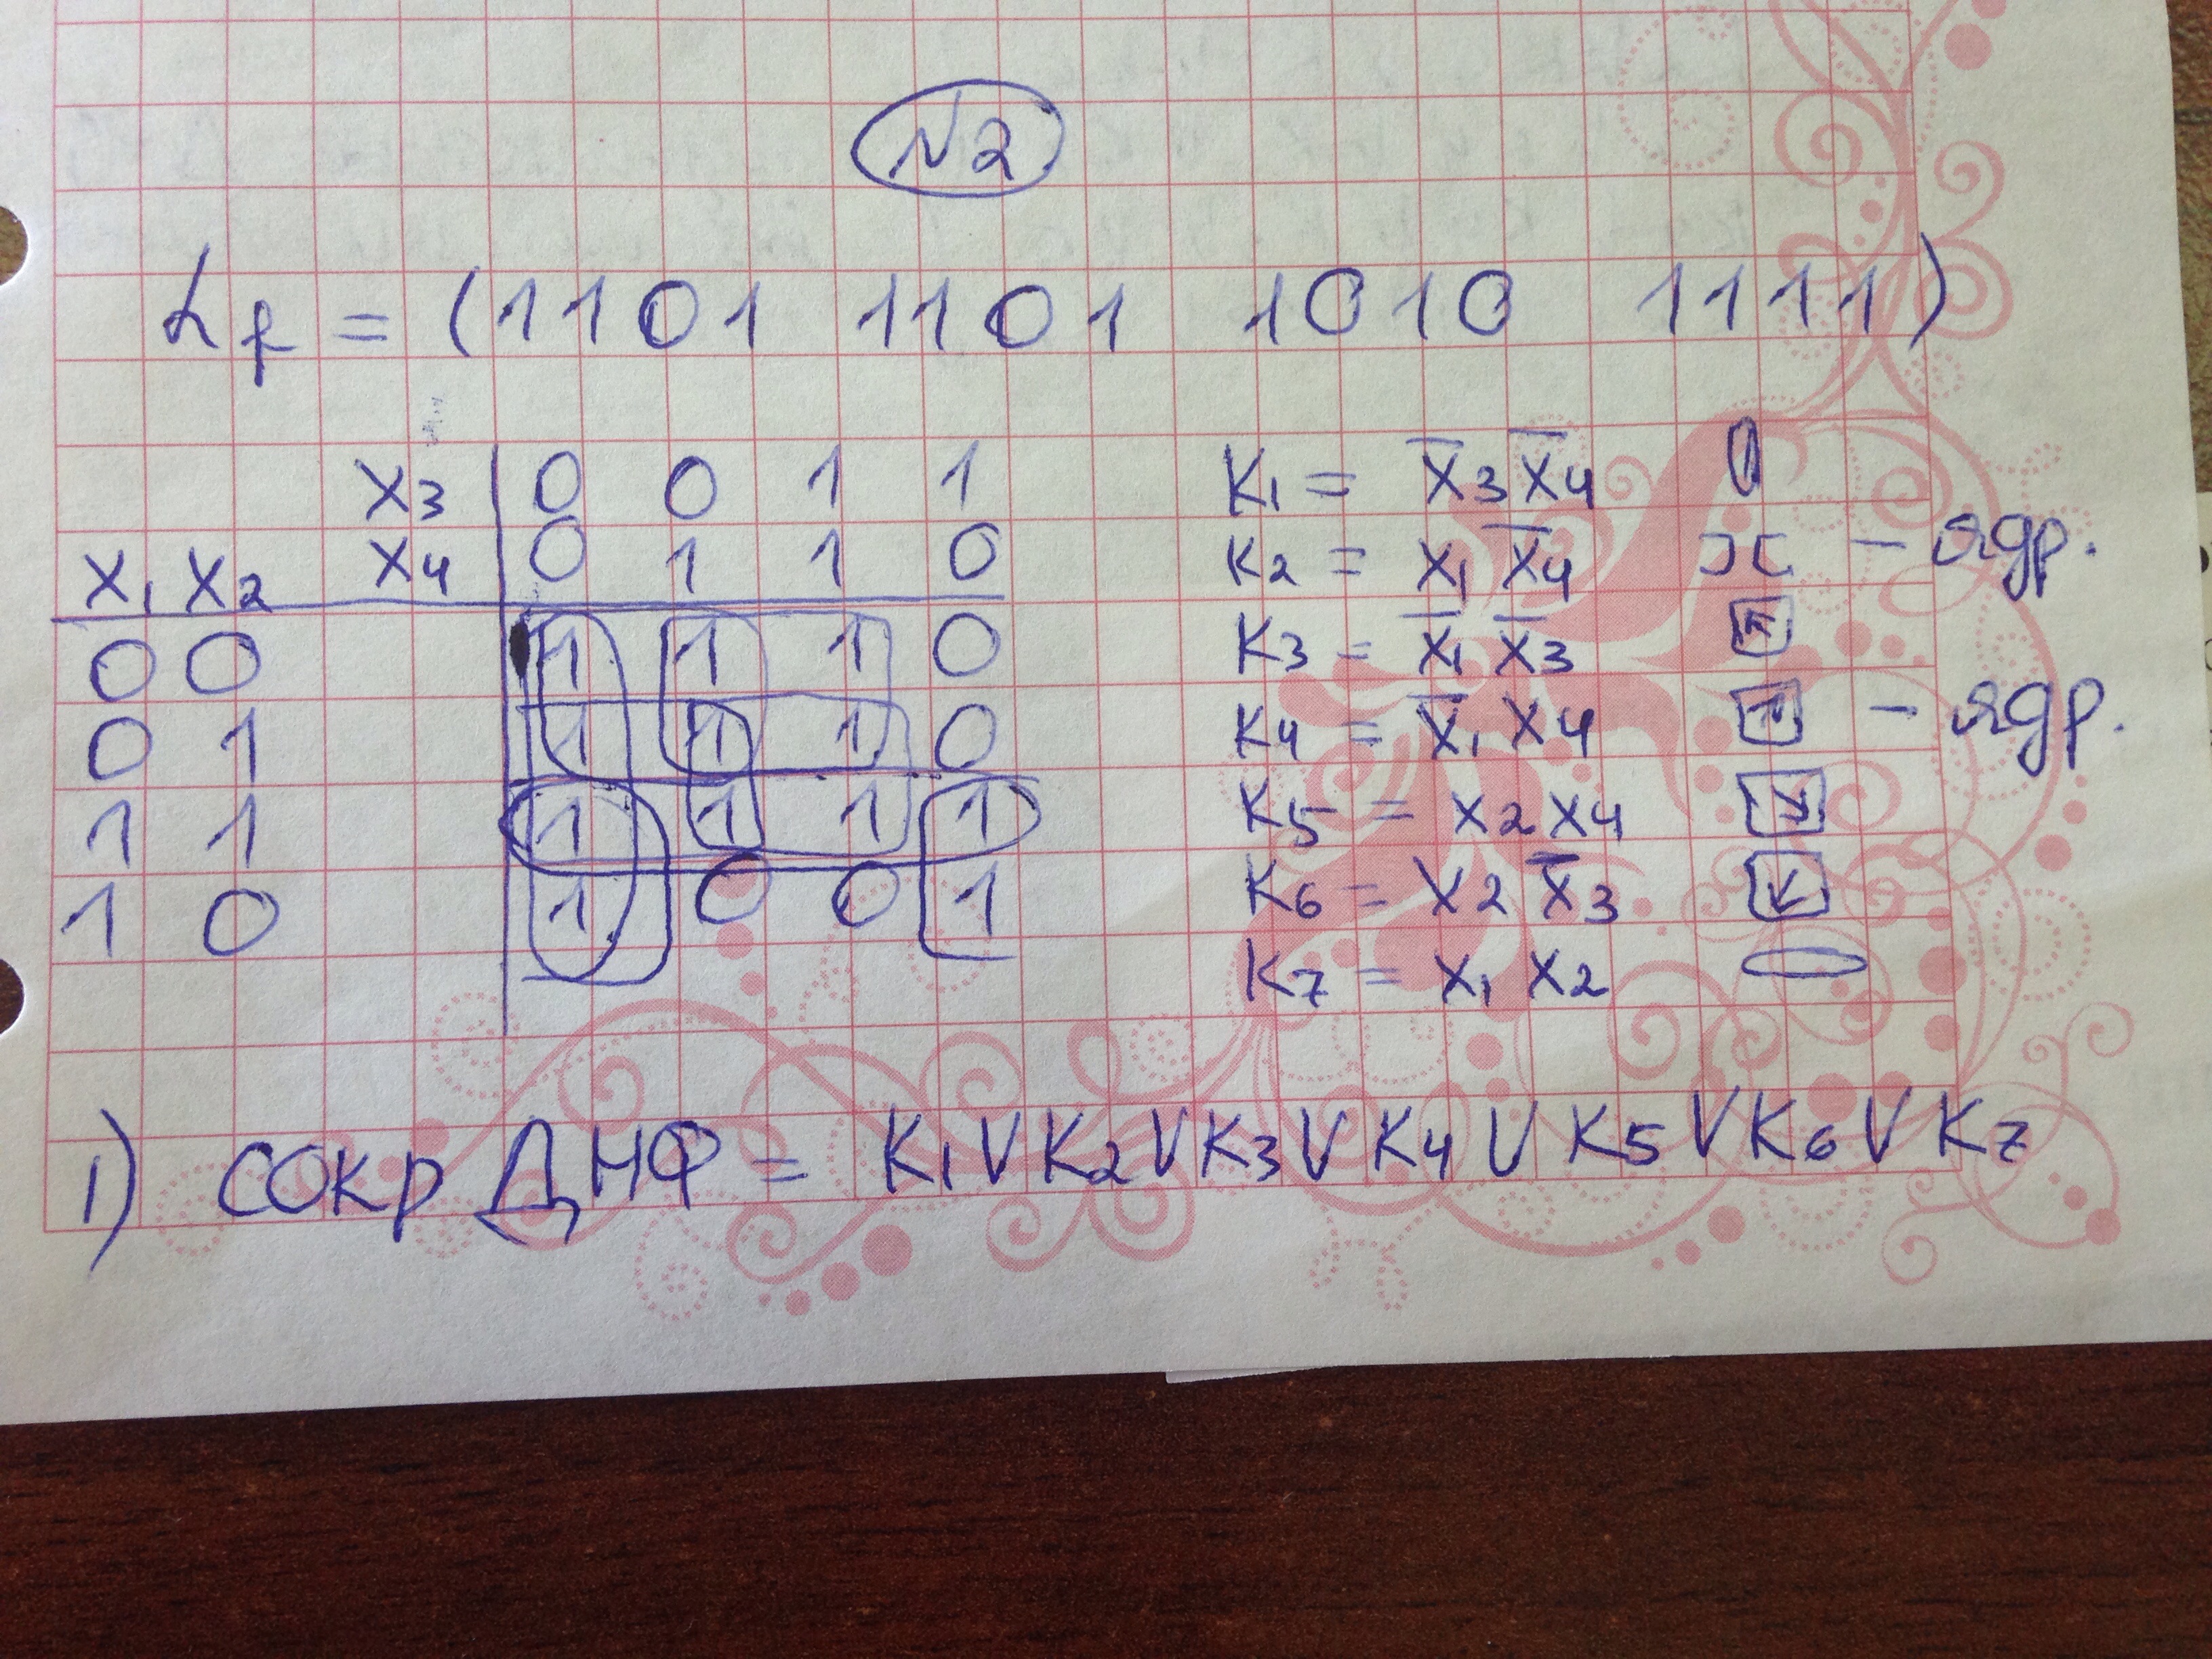 N2
αf = (1101 1101 1010 1111)
x3 0 0 1 1
x1 x2 x4 0 1 1 0
0 0 1 1 1 0
0 1 1 1 1 0
1 1 1 1 1 1
1 0 1 0 0 1
K1 = x̅3 x̅4
K2 = x1 x̅4 – ядр.
K3 = x̅1 x̅3
K4 = x̅1 x4 – ядр.
K5 = x2 x4
K6 = x2 x̅3
K7 = x1 x2
1) сокр ДНФ = K1 V K2 V K3 V K4 V K5 V K6 V K7